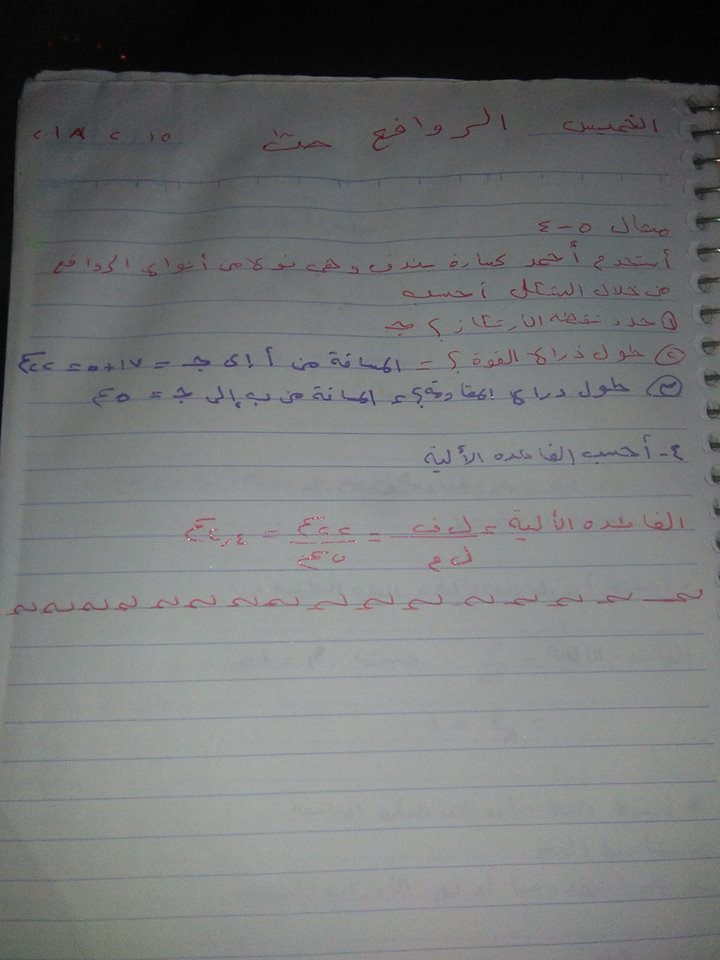 الخميس الروافع ١٥ ٢ ٢٠١٨
مثال ٥-٤
أستخدم أحمد كسارة بندق وهي نوع من أنواع الروافع
من خلال الشكل أحسب
① حدد نقطة الارتكاز؟ جـ
② طول ذراع القوة؟ = المسافة من أ إلى جـ = ١٧+٥ = ٢٢سم
③ طول ذراع المقاومة؟ = المسافة من ب إلى جـ = ٥سم
٤- أحسب الفائده الألية
الفائده الألية = ل ق / ل م = ٢٢سم / ٥سم = ٤,٤سم